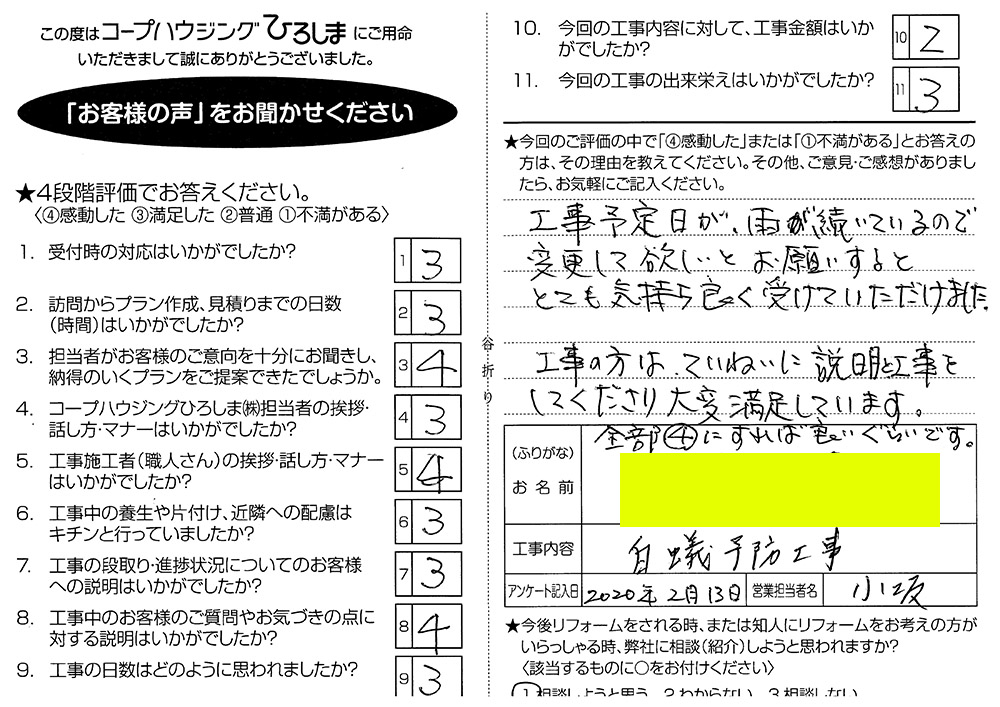 この度はコープハウジングひろしまにご用命
いただきまして誠にありがとうございました。
「お客様の声」をお聞かせください
★4段階評価でお答えください。
〈④感動した ③満足した ②普通 ①不満がある〉
1. 受付時の対応はいかがでしたか?
1 3
2. 訪問からプラン作成、見積りまでの日数
(時間)はいかがでしたか?
2 3
3. 担当者がお客様のご意向を十分にお聞きし、
納得のいくプランをご提案できたでしょうか。
3 4
4. コープハウジングひろしま㈱担当者の挨拶・
話し方・マナーはいかがでしたか?
4 3
5. 工事施工者(職人さん)の挨拶・話し方・マナー
はいかがでしたか?
5 4
6. 工事中の養生や片付け、近隣への配慮は
キチンと行っていましたか?
6 3
7. 工事の段取り・進捗状況についてのお客様
への説明はいかがでしたか?
7 3
8. 工事中のお客様のご質問やお気づきの点に
対する説明はいかがでしたか?
8 4
9. 工事の日数はどのように思われましたか?
9 3
谷折り
10. 今回の工事内容に対して、工事金額はいか
がでしたか?
10 2
11. 今回の工事の出来栄えはいかがでしたか?
11 3
★今回のご評価の中で「④感動した」または「①不満がある」とお答えの
方は、その理由を教えてください。その他、ご意見・ご感想がありまし
たら、お気軽にご記入ください。
工事予定日が、雨が続いているので
変更して欲しいとお願いすると
とても気持ち良く受けていただけました
工事の方は、ていねいに説明と工事を
してくださり大変満足しています。
全部④にすれば良いぐらいです。
(ふりがな)
お名前
工事内容 白蟻予防工事
アンケート記入日 2020年2月13日 営業担当者名 小坂
★今後リフォームをされる時、または知人にリフォームをお考えの方が
いらっしゃる時、弊社に相談(紹介)しようと思われますか?
〈該当するものに○をお付けください〉
1.相談しようと思う 2.わからない 3.相談しない